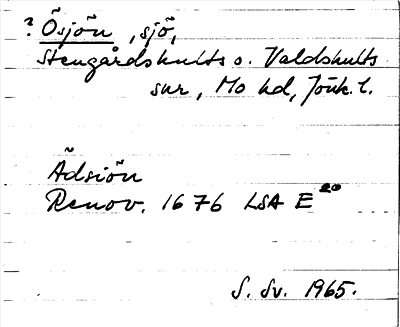 ? Ösjön, sjö,
Stengårdshults o. Valdshults
snr, Mo hd, Jönk. l.
Ödsiön
Renov. 1676 LSA E 20
S. Sv. 1965.